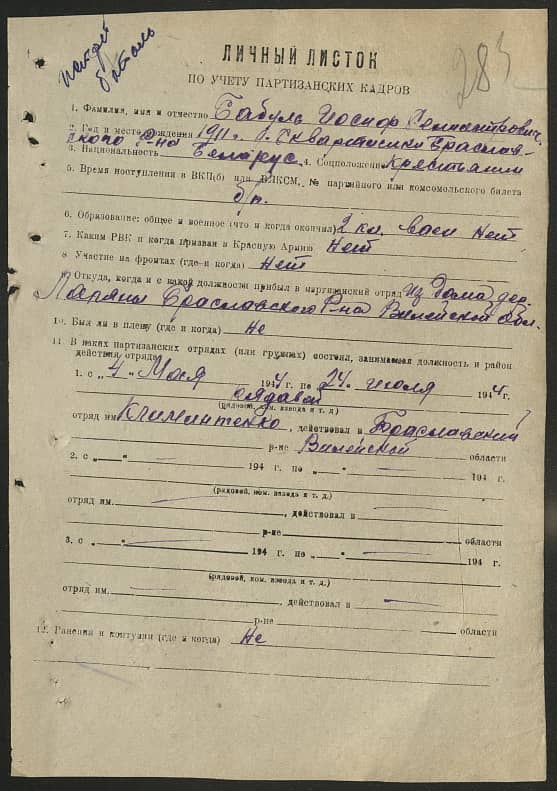 283
ЛИЧНЫЙ ЛИСТОК
ПО УЧЕТУ ПАРТИЗАНСКИХ КАДРОВ
1. Фамилия, имя и отчество Бабуль Иосиф
2. Год и место рождения 1911 г.
ского р-на
3. Национальность Беларус 4. Соцположение Крестьянин
5. Время поступления в ВКП(б) или ВЛКСМ, № партийного или комсомольского билета
б/п.
6. Образование: общее и военное (что и когда окончил) 2 кл. Нет
7. Каким РВК и когда призван в Красную Армию Нет
8. Участие на фронтах (где и когда) Нет
9. Откуда, когда и с какой должности прибыл в партизанский отряд из дома дер.
Браславского р-на Вилейской обл.
10. Был ли в плену (где и когда) Не
11. В каких партизанских отрядах (или группах) состоял, занимаемая должность и район
действия отряда
1. с „4" Мая 1944 г. по „24" июля 1944 г.
рядавой
(рядовой, ком. взвода и т. д.)
отряд им. , действовал в Браславский
р-не Вилейской области
2. с „ — " — 194 г. по „ — " — 194 г.
(рядовой, ком. взвода и т. д.)
отряд им. — , действовал в —
р-не области
3. с „ — " — 194 г. по „ — " — 194 г.
(рядовой, ком. взвода и т. д.)
отряд им. — , действовал в —
р-не области
12. Ранения и контузии (где и когда) Не